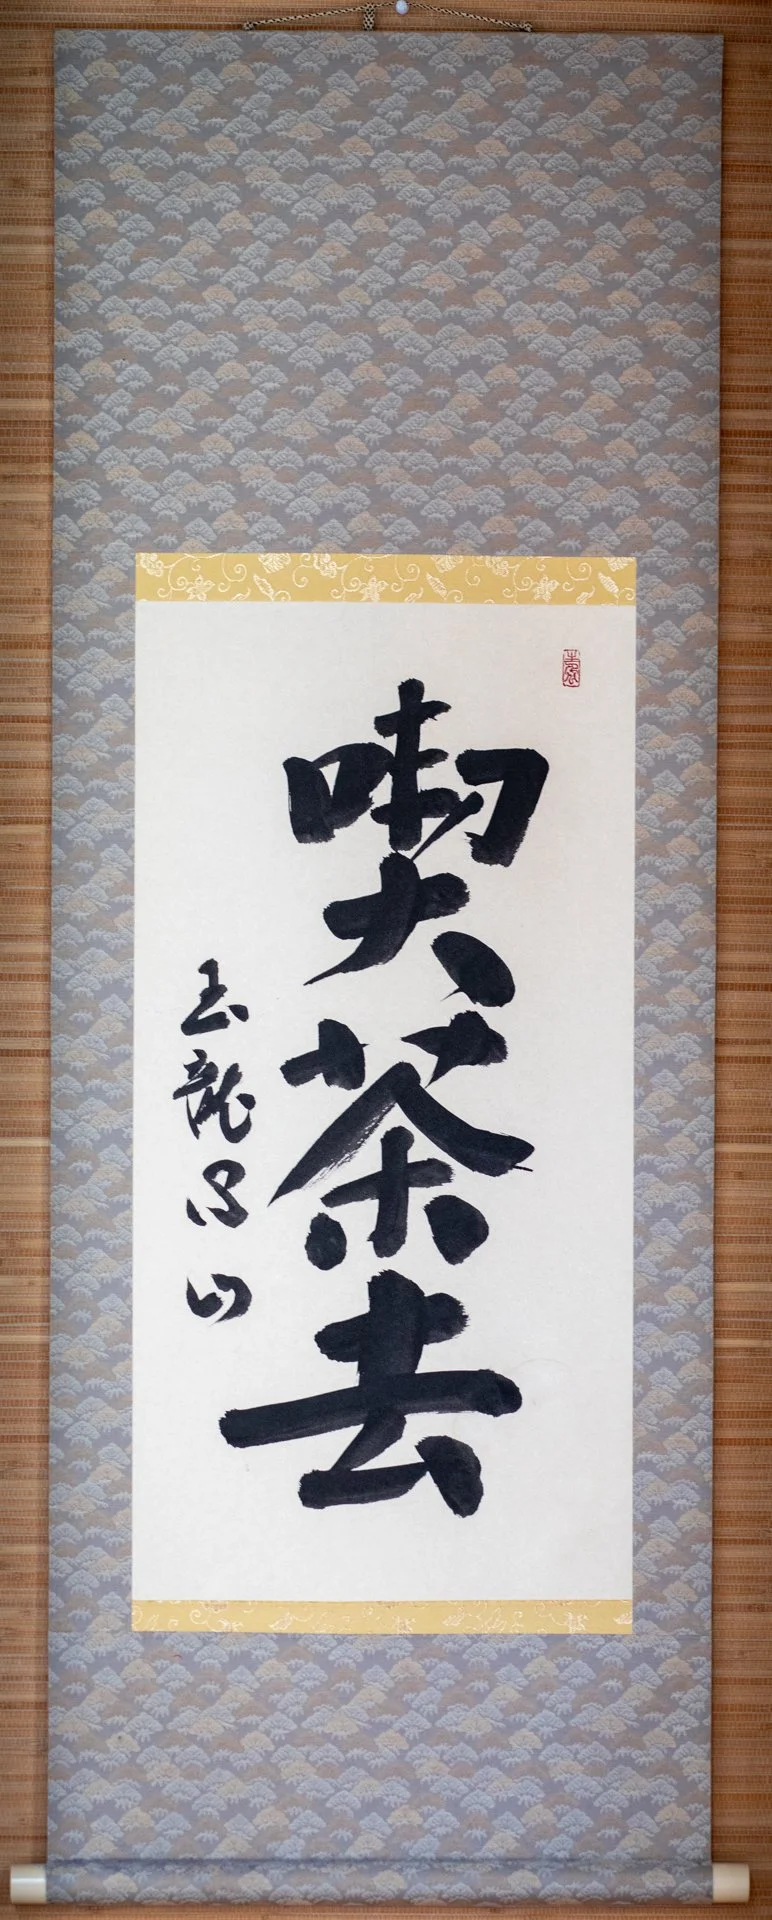 喫茶去
玉龍昌山